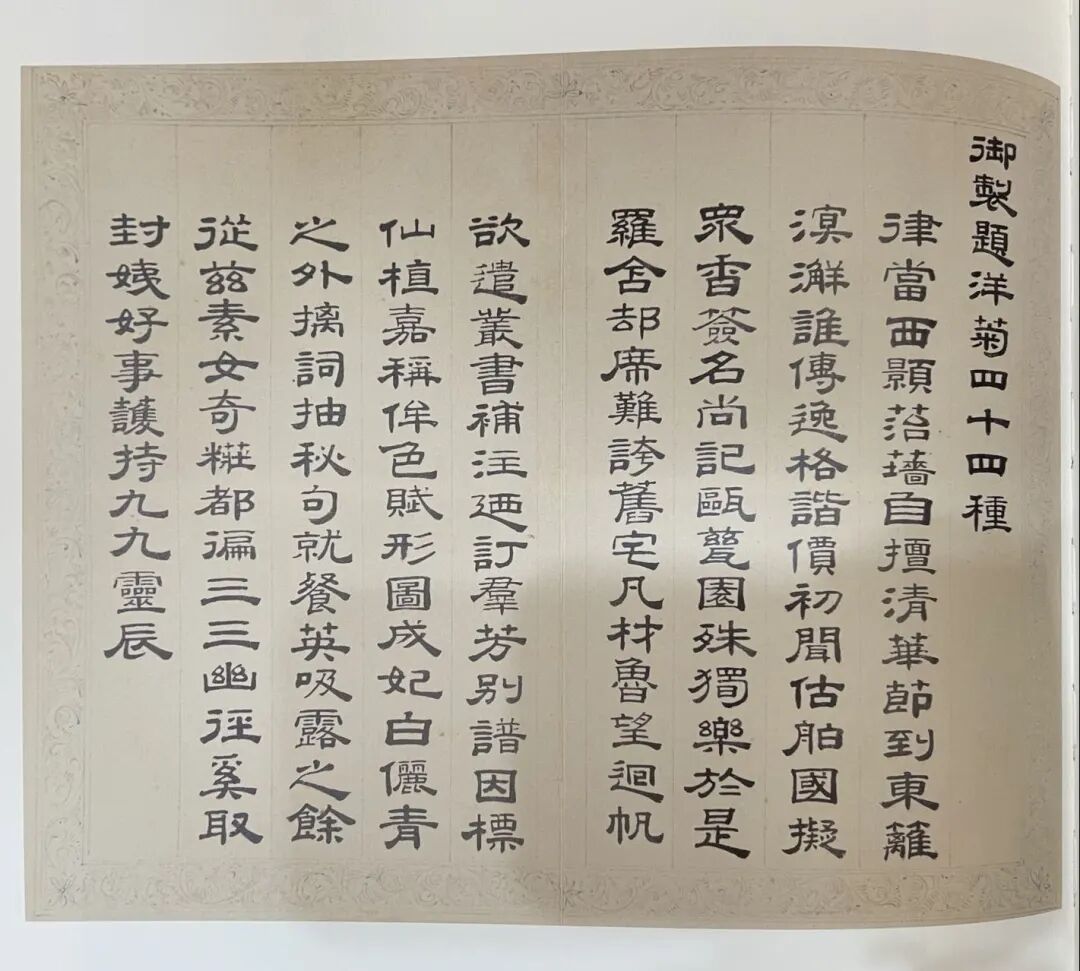 御製題洋菊四十四種
律當西顥落蘠自擅清華節到東籬
溟澥誰傳逸格諧價初聞估舶國擬
眾香簽名尚記甌甆園殊獨樂於是
羅舍却席難誇舊宅凡材魯望迴帆
欲遣叢書補注迺訂羣芳別譜因標
仙植嘉稱侔色賦形圖成妃白儷青
之外摛詞抽秋句就餐英吸露之餘
從茲素女奇糚都徧三三幽徑奚取
封姨好事護持九九靈辰